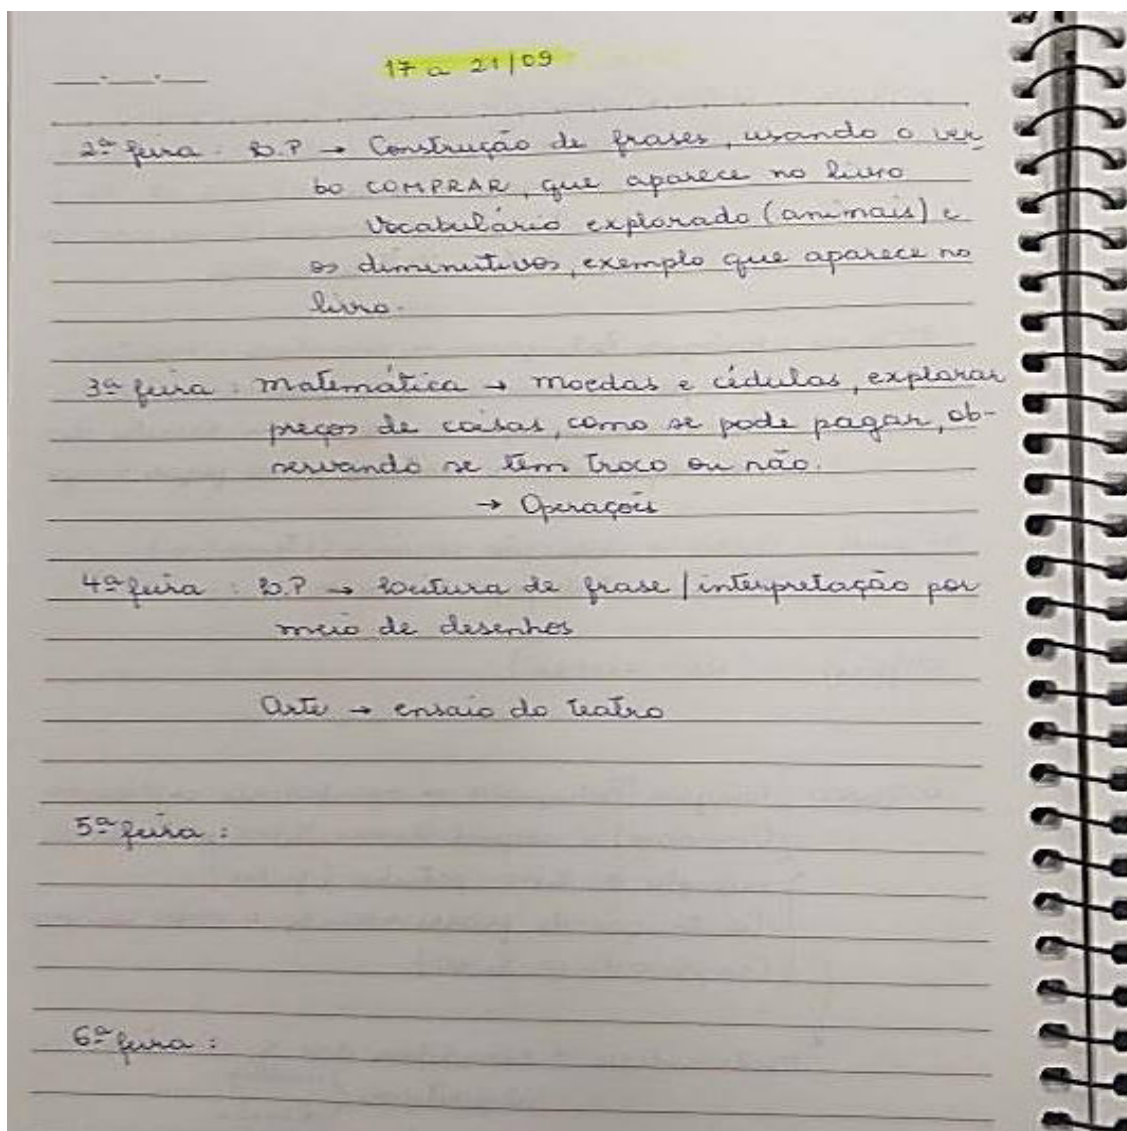 17 a 21/09
2ª feira: L.P → Construção de frases, usando o ver-
bo COMPRAR, que aparece no livro
Vocabulário explorado (animais) e
os diminutivos, exemplo que aparece no
livro.
3ª feira: Matemática → moedas e cédulas, explorar
preços de coisas, como se pode pagar, ob-
servando se tem troco ou não.
→ Operações
4ª feira: L.P → Leitura de frase / interpretação por
meio de desenhos
Arte → ensaio do teatro
5ª feira:
6ª feira: